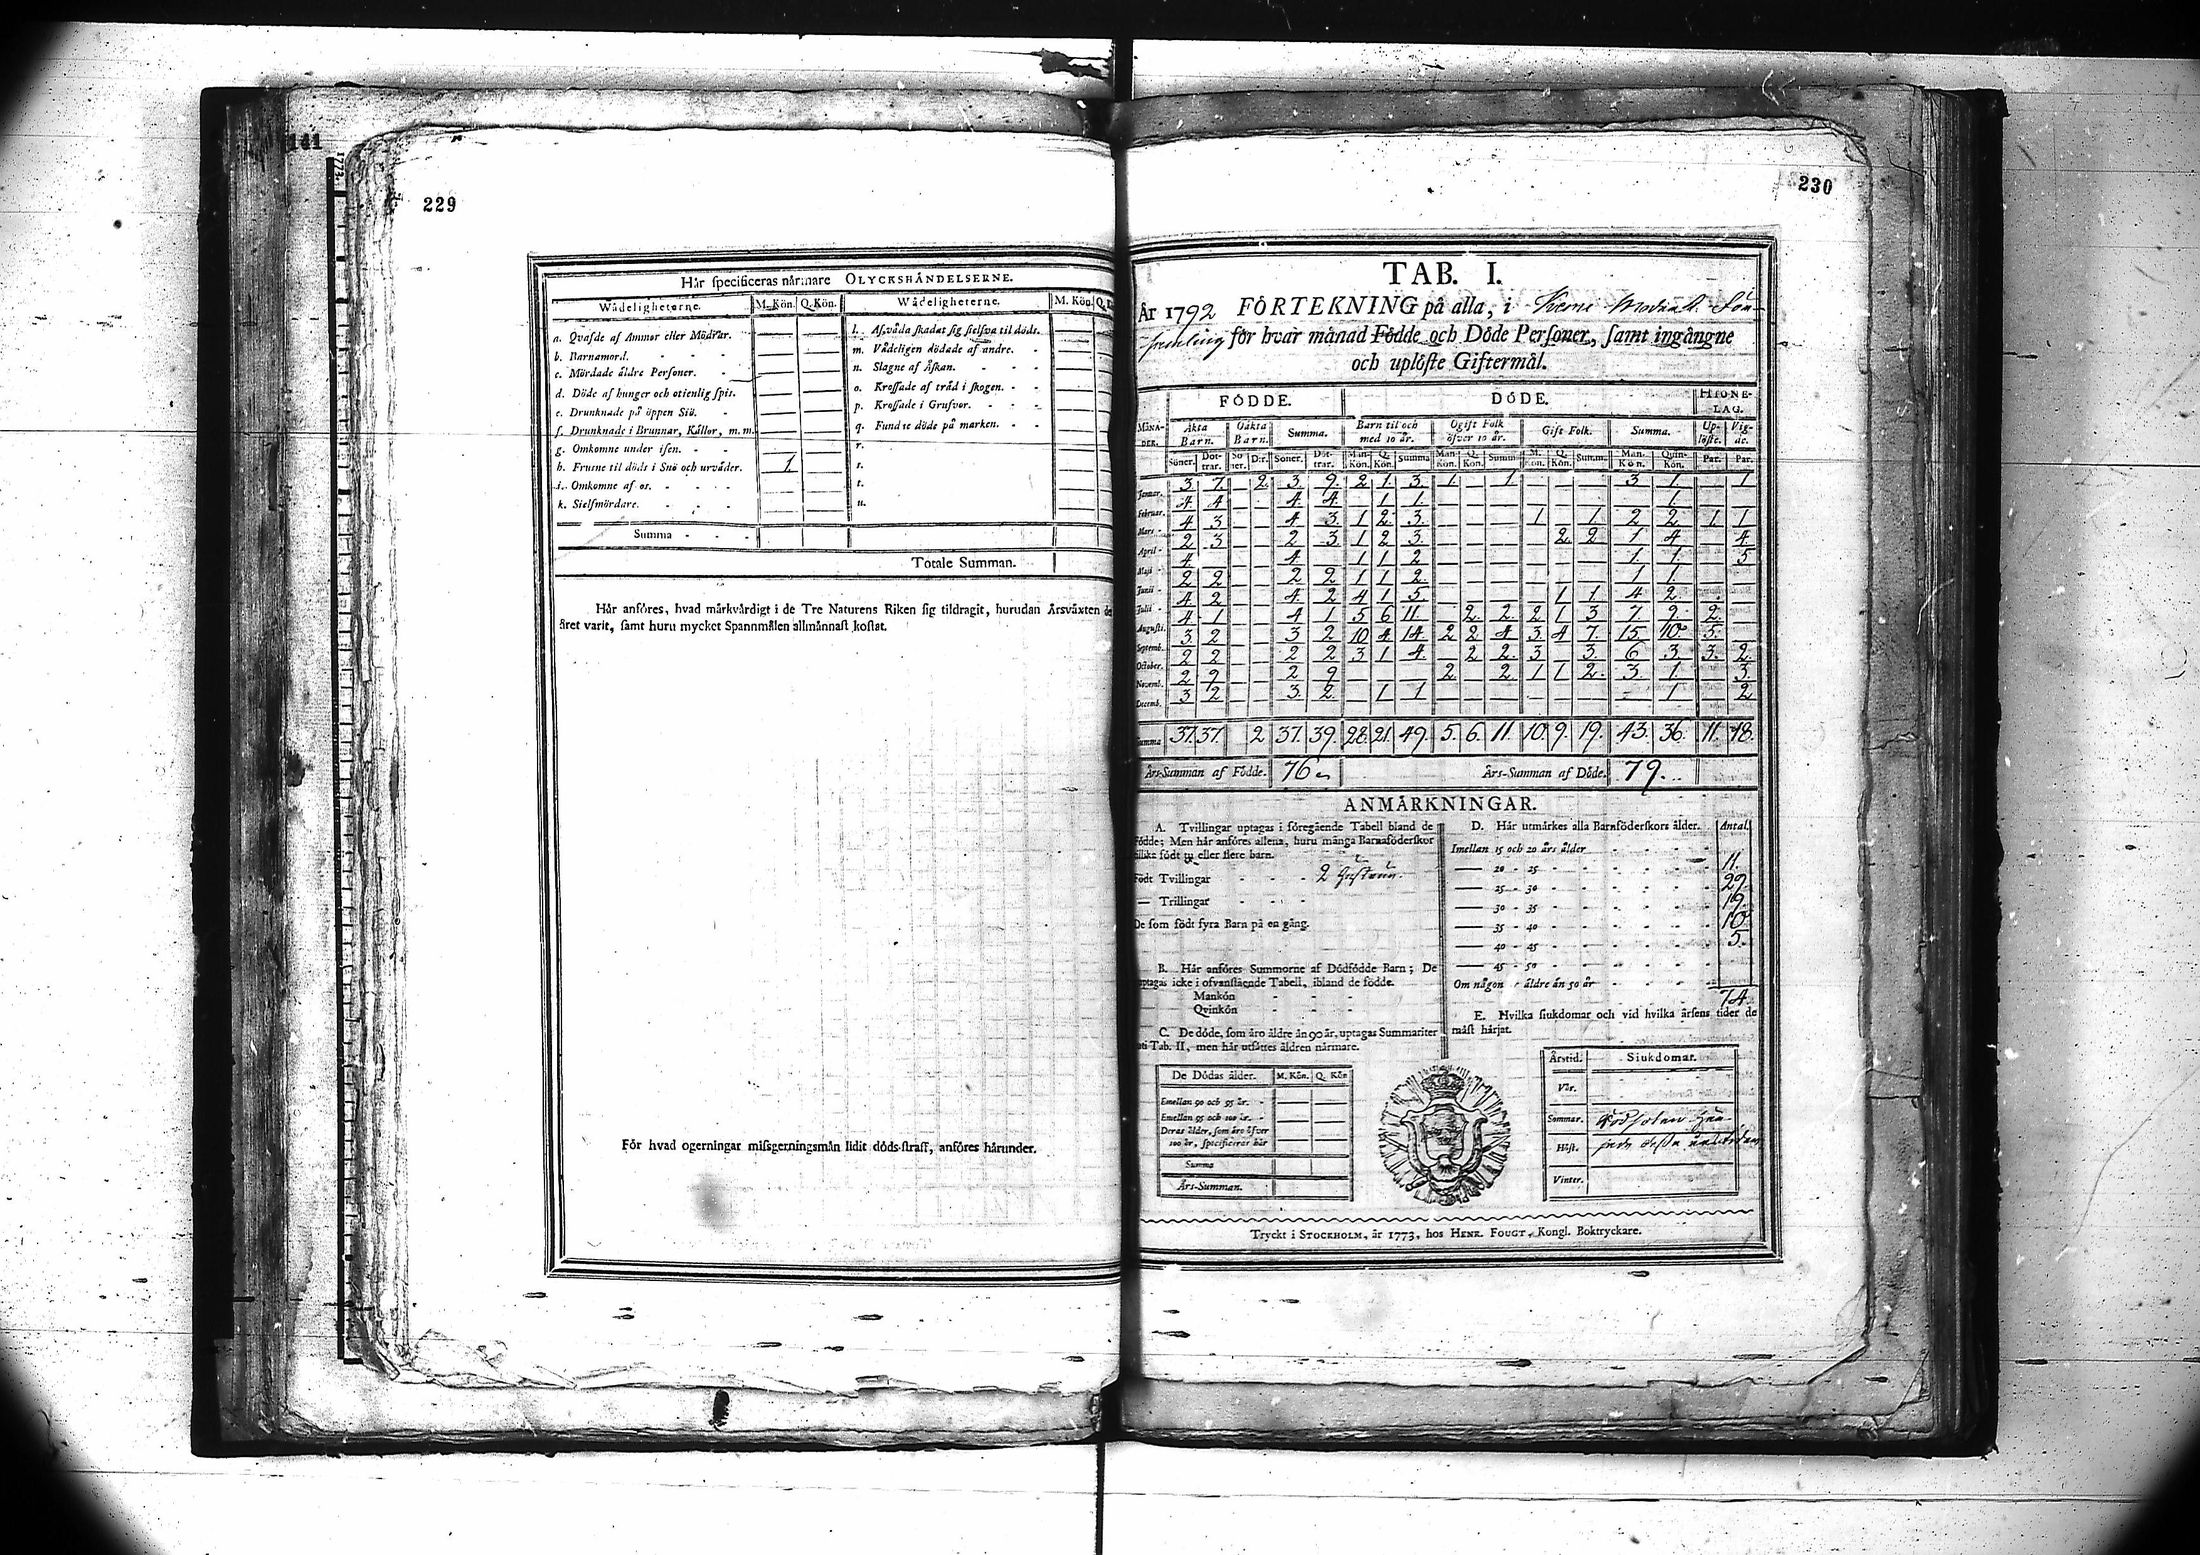 141
1773.
229
Här specificeras närmare OLYCKSHÄNDELSERNE.
Wådeligheterne. M. Kön. Q. Kön. Wådeligheterne. M. Kön. Q.
a. Qvafde af Ammor eller Mödrar. — — l. Af våda skadat sig sielfva til döds. —
b. Barnamord. - - - — — m. Vådeligen dödade af andre. - —
c. Mördade äldre Personer. - — — n. Slagne af Åskan. - - - —
d. Döde af hunger och otienlig spis. — — o. Krossade af träd i skogen. - - —
e. Drunknade på öppen Siö. - — — p. Krossade i Grufvor. - - - —
f. Drunknade i Brunnar, Källor, m. m. — — q. Fundne döde på marken. - - —
g. Omkomne under isen. - - — — r. —
h. Frusne til döds i Snö och urväder. 1 — s. —
i. Omkomne af os. - - - — — t. —
k. Sielfmördare. - - - — — u. —
Summa - - -
Totale Summan.
Här anföres, hvad märkvärdigt i de Tre Naturens Riken sig tildragit, hurudan Årsväxten de
året varit, samt huru mycket Spannmålen allmännast kostat.
För hvad ogerningar missgerningsmän lidit döds-straff, anföres härunder.
230
TAB. I.
År 1792 FÖRTEKNING på alla, i
för hvar månad Födde och Döde Personer, samt ingångne
och uplöste Giftermål.
MÅNADER. FÖDDE. DÖDE. HIONELAG.
Äkta Barn. Oäkta Barn. Summa. Barn til och med 10 år. Ogift Folk öfver 10 år. Gift Folk. Summa. Uplöste. Vigde.
Söner. Döttrar. Söner. D:r. Söner. Döttrar. Man-Kön. Q. Kön. Summa Man-Kön. Q. Kön. Summ. M. Kön. Q. Kön. Summ. Man-Kön. Quin-Kön. Par. Par.
Januar. 3 7 — 2 3 9 2 1 3 1 — 1 — — — 3 1 — 1
Februar. 4 4 — — 4 4 — 1 1 — — — — — — — 1 — —
Mars 4 3 — — 4 3 1 2 3 — — — 1 — 1 2 2 1 1
April - 2 3 — — 2 3 1 2 3 — — — — 2 2 1 4 — 4
Maji - 4 — — — 4 — 1 1 2 — — — — — — 1 1 — 5
Junii - 2 2 — — 2 2 1 1 2 — — — — — — 1 1 — —
Julii - 4 2 — — 4 2 4 1 5 — — — — 1 1 4 2 — —
Augusti. 4 1 — — 4 1 5 6 11 — 2 2 2 1 3 7 9 2 —
Septemb. 3 2 — — 3 2 10 4 14 2 2 4 3 4 7 15 10 5 —
October. 2 2 — — 2 2 3 1 4 — 2 2 3 — 3 6 3 3 2
Novemb. 2 9 — — 2 9 — — — 2 — 2 1 1 2 3 1 — 3
Decemb. 3 2 — — 3 2 — 1 1 — — — — — — — 1 — 2
Summa 37. 37. 2 37. 39. 28. 21. 49. 5. 6. 11. 10. 9. 19. 43. 36. 11. 18.
Års-Summan af Födde. 76 Års-Summan af Döde. 79.
ANMÄRKNINGAR.
A. Tvillingar uptagas i föregående Tabell bland de
Födde; Men här anföres allena, huru många Barnaföderskor
födt tu eller flere barn.
Födt Tvillingar - - - 2
— Trillingar - - -
De som födt fyra Barn på en gång.
B. Här anföres Summorne af Dödfödde Barn; De
uptagas icke i ofvanstående Tabell, ibland de födde.
Mankön - - -
Qvinkön - - -
C. De döde, som äro äldre än 90 år, uptagas Summariter
uti Tab. II, men här utsättes åldren närmare.
De Dödas ålder. M. Kön. Q. Kön
Emellan 90 och 95 år. - — —
Emellan 95 och 100 år. - — —
Deras ålder, som äro öfver
100 år, specificeras här — —
Summa
Års-Summan.
D. Här utmärkes alla Barnföderskors ålder. Antal.
Imellan 15 och 20 års ålder - - - -
— 20 - 25 - - - - - 11.
— 25 - 30 - - - - - 29.
— 30 - 35 - - - - - 19.
— 35 - 40 - - - - - 10.
— 40 - 45 - - - - - 5.
— 45 - 50 - - - - -
Om någon är äldre än 50 år - - - -
74.
E. Hvilka siukdomar och vid hvilka årsens tider de
mäst härjat.
Årstid. Siukdomar.
Vår.
Sommar. Rödsoten
Höst.
Vinter.
Tryckt i STOCKHOLM, år 1773, hos HENR. FOUGT, Kongl. Boktryckare.